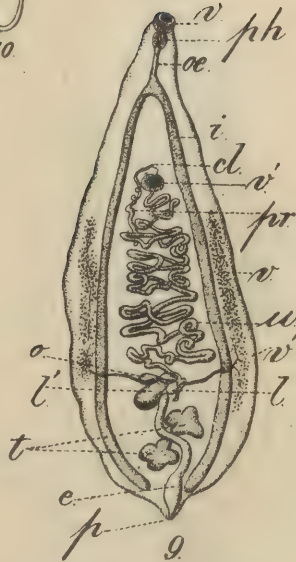 10.
v
ph
oe.
i
cl
v'
pr
v
u
o
v'
l'
l
t
e
p
9.